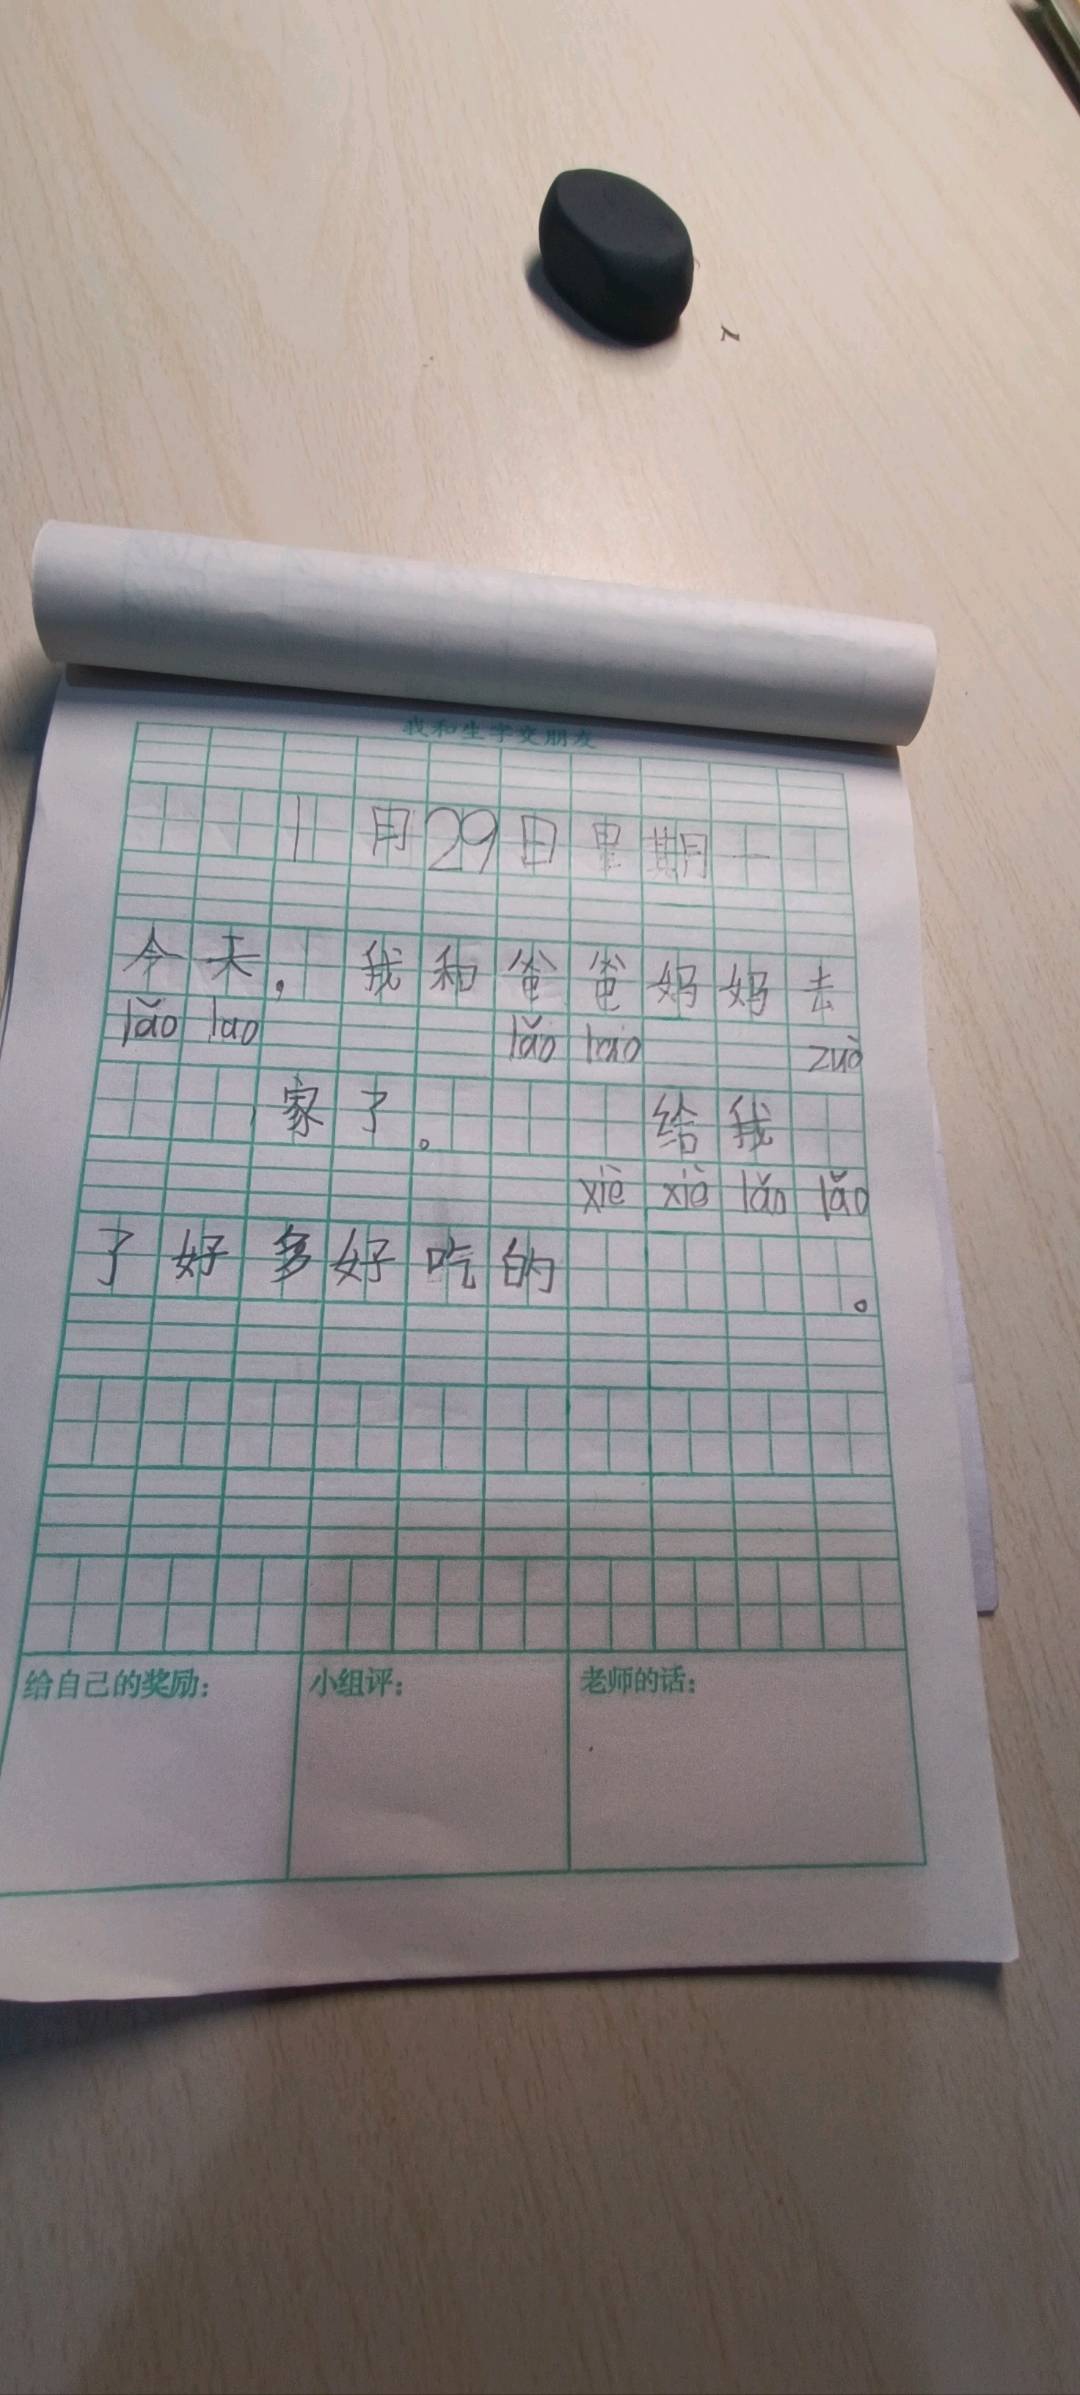 我和生字交朋友
11月29日星期一
今天,我和爸爸妈妈去
lǎo lao lǎo lao zuò
家了。给我
xiè xiè lǎo lǎo
了好多好吃的。
给自己的奖励:
小组评:
老师的话: